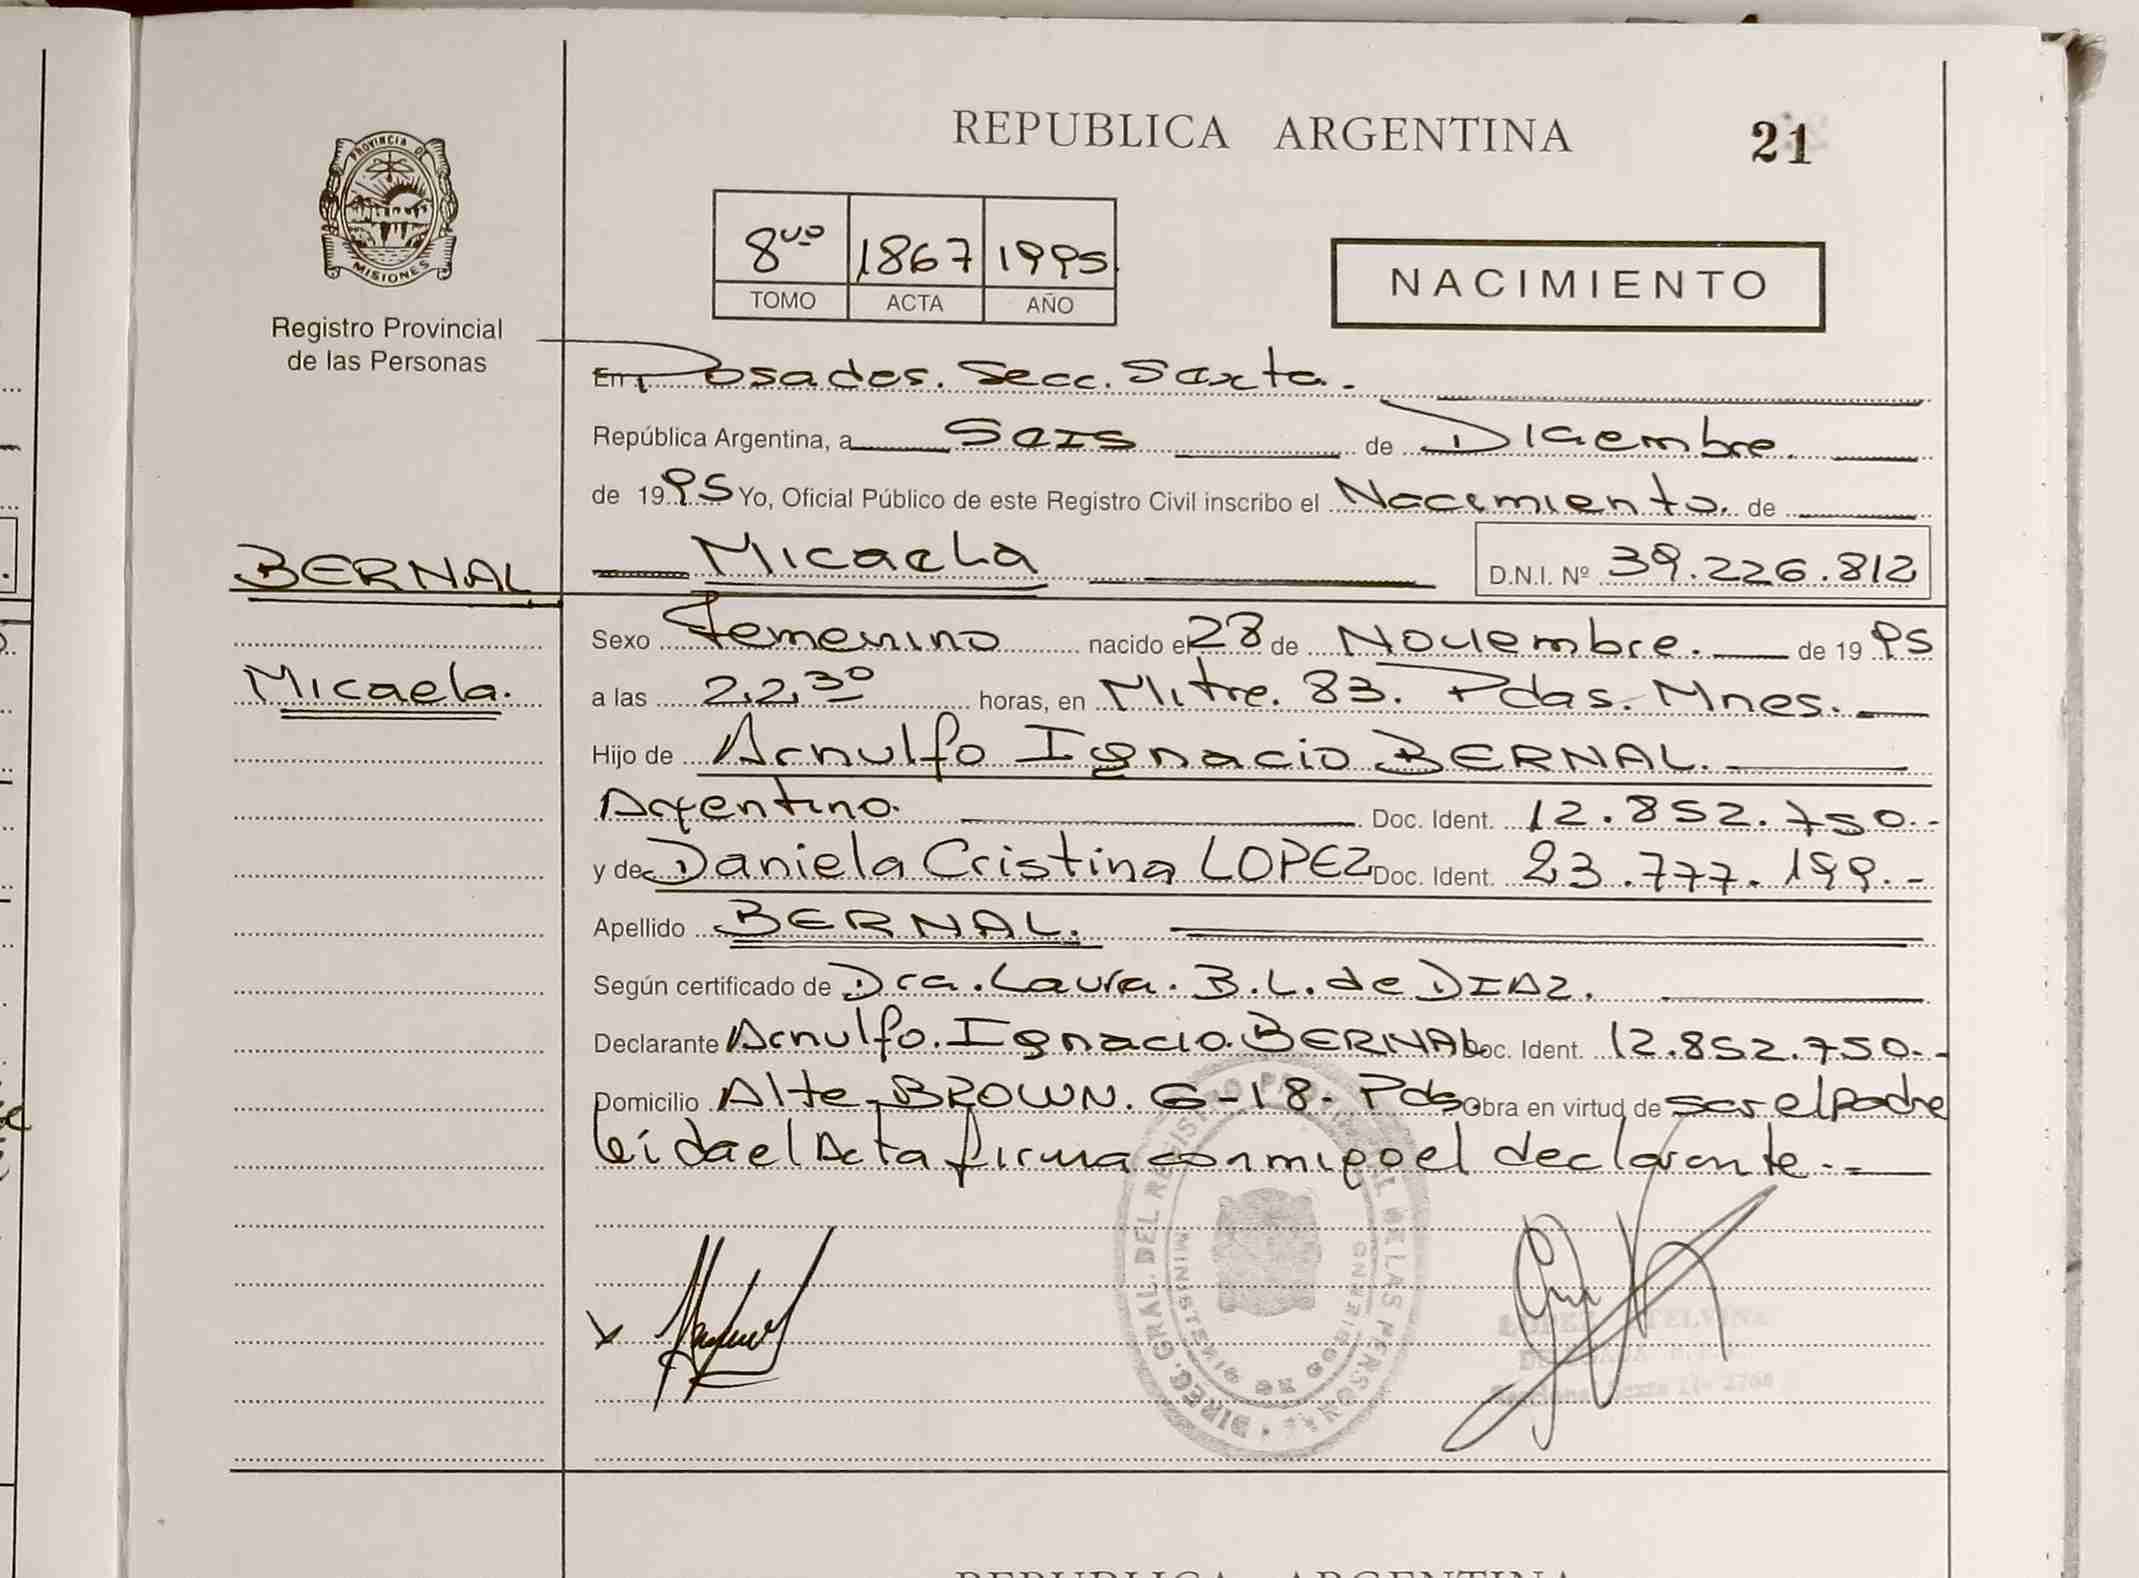 REPUBLICA ARGENTINA
21
PROVINCIA DE
MISIONES
Registro Provincial
de las Personas
8vo 1867 1995
TOMO ACTA AÑO
NACIMIENTO
En Posadas. Secc. Sexta.
República Argentina, a Seis de Diciembre.
de 1995 Yo, Oficial Público de este Registro Civil inscribo el Nacimiento. de
BERNAL
Micaela D.N.I. Nº 39.226.812
Sexo Femenino nacido el 28 de Noviembre. de 1995
Micaela.
a las 22,30 horas, en Mitre. 83. Pdas. Mnes.
Hijo de Arnulfo Ignacio BERNAL.
Argentino. Doc. Ident. 12.852.750.-
y de Daniela Cristina LOPEZ Doc. Ident. 23.777.199.-
Apellido BERNAL.
Según certificado de Dra. Laura. B. L. de DIAZ.
Declarante Arnulfo. Ignacio. BERNAL Doc. Ident. 12.852.750.-
Domicilio Alte. BROWN. 6-18. Pdas Obra en virtud de ser el padre
leída el Acta firma conmigo el declarante.-
DIREC. GRAL. DEL REGISTRO PROVINCIAL DE LAS PERSONAS
MINISTERIO DE GOBIERNO
LOPEZ ETELVINA